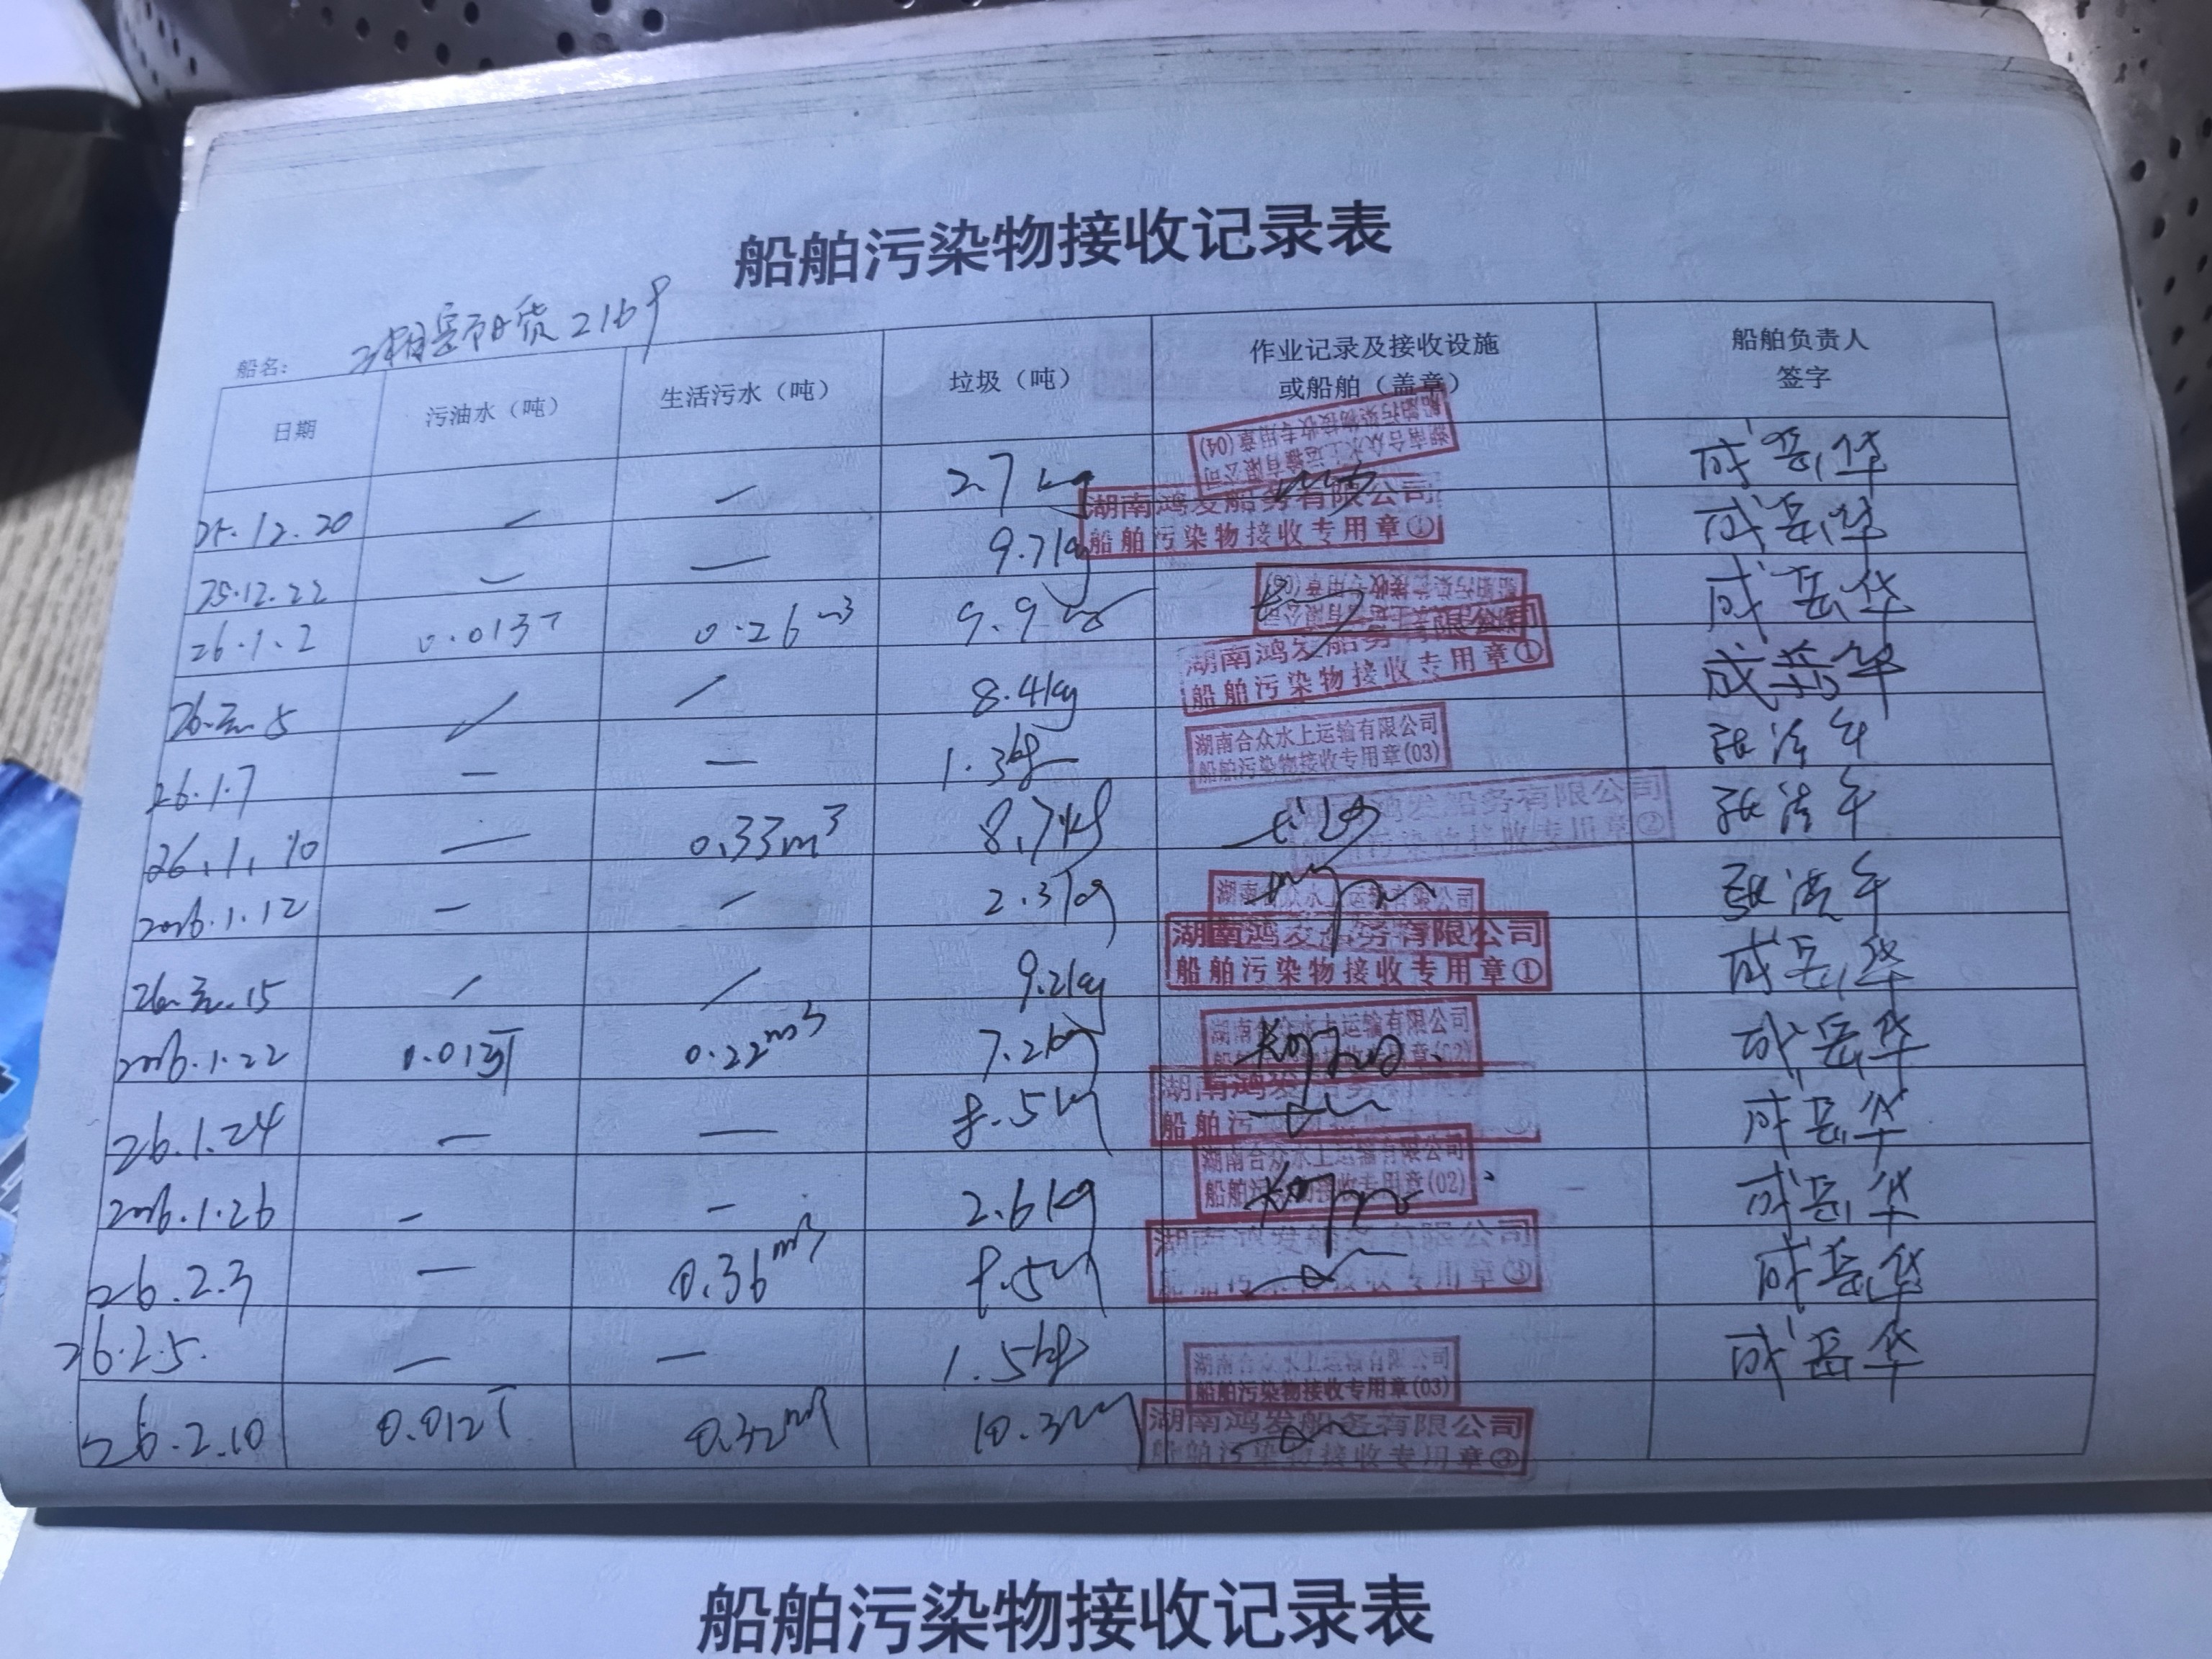 船舶污染物接收记录表
船名：
日期 污油水（吨） 生活污水（吨） 垃圾（吨） 作业记录及接收设施或船舶（盖章） 船舶负责人签字
25.12.20 — — 2.7kg 湖南合众水上运输有限公司 船舶污染物接收专用章(04) 成岳华
25.12.22 — — 9.7kg 湖南鸿发船务有限公司 船舶污染物接收专用章① 成岳华
26.1.2 0.013T 0.26m3 9.9 成岳华
26.元.5 / / 8.4kg 湖南鸿发船务有限公司 船舶污染物接收专用章① 成岳华
26.1.7 — — 1.3kg 湖南合众水上运输有限公司 船舶污染物接收专用章(03)
26.1.10 — 0.33m3 8.7kg 鸿发船务有限公司 污染物接收专用章②
2026.1.12 — — 2.3kg 湖南合众水上运输有限公司
26.元.15 / / 9.2kg 湖南鸿发船务有限公司 船舶污染物接收专用章① 成岳华
2026.1.22 0.013T 0.22m3 7.2kg 湖南合众水上运输有限公司 成岳华
26.1.24 — — 8.5kg 湖南鸿发船务有限公司 成岳华
2026.1.26 — — 2.6kg 湖南合众水上运输有限公司 船舶污染物接收专用章(02) 成岳华
26.2.3 — 0.36m3 8.5kg 湖南鸿发船务有限公司 船舶污染物接收专用章③ 成岳华
26.2.5. — — 1.5kg 湖南合众水上运输有限公司 船舶污染物接收专用章(03) 成岳华
26.2.10 0.012T 0.32m3 10.3kg 湖南鸿发船务有限公司 船舶污染物接收专用章③
船舶污染物接收记录表